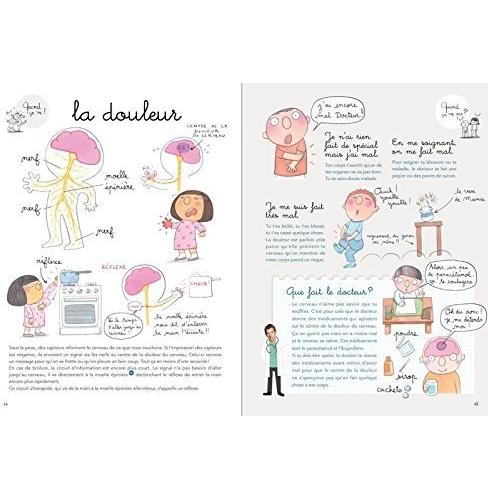 Quand
ça va !
la douleur
CENTRE DE LA
DOULEUR
DU CERVEAU
nerf
moelle
épinière
nerf
nerf
réflexe
RÉFLEXE
CHAUD
la moelle épinière
nous dit d'enlever
la main !
Sous la peau, des capteurs informent le cerveau de ce que nous touchons. Si l'impression des capteurs
est négative, ils envoient un signal via les nerfs au centre de la douleur du cerveau. Celui-ci renvoie
un message pour qu'on se frotte ou se plaigne. Tout ça en moins d'une seconde !
En cas de brûlure, le circuit d'information est encore plus court. Le signal n'a pas besoin d'aller
jusqu'au cerveau, il va directement à la moelle épinière
encore plus rapidement.
Ce circuit ultrarapide, qui va de la main à la moelle épinière aller-retour, s'appelle un réflexe.
44
j'ai encore
mal Docteur !
Quand
ça va
Je n'ai rien
fait de spécial
mais j'ai mal.
Ton corps t'avertit qu'un de
tes organes ne va pas bien.
Tu es sans doute malade.
En me soignant,
on me fait mal.
Pour soigner ta blessure ou ta
maladie, le docteur te fait une
piqûre ou des points de suture.
Je me suis fait
très mal.
Tu t'es brûlé, tu t'es blessé,
tu t'es cassé quelque chose.
La douleur est parfois utile
parce qu'elle prévient le
cerveau qu'un membre de
notre corps prend un risque.
Ouch !
gouille
gouille !
le vase
de Mamie
Que fait le docteur ?
Le cerveau n'aime pas savoir que tu
souffres. C'est pour cela que le docteur
donne des médicaments qui agissent
sur le centre de la douleur du cerveau.
Ça ne guérit pas mais on a moins mal
et le cerveau se calme. Ces médicaments
sont le paracétamol et l'ibuprofène.
Si tu dois être opéré, le docteur te donne
des médicaments avant et après
pour que le centre de la douleur
ne s'aperçoive pas qu'on fait quelque
chose à ton corps.
Alors, un peu
de paracétamol,
ça te soulagera
Oh dis donc !
je me détends
moi !
poudre
sirop
cachets
45